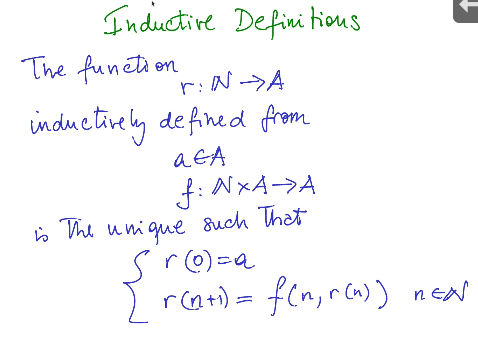 Inductive Definitions
The function
r: ℕ → A
inductively defined from
a ∈ A
f: ℕ × A → A
is The unique such that
{ r(0) = a
r(n+1) = f(n, r(n)) n ∈ ℕ